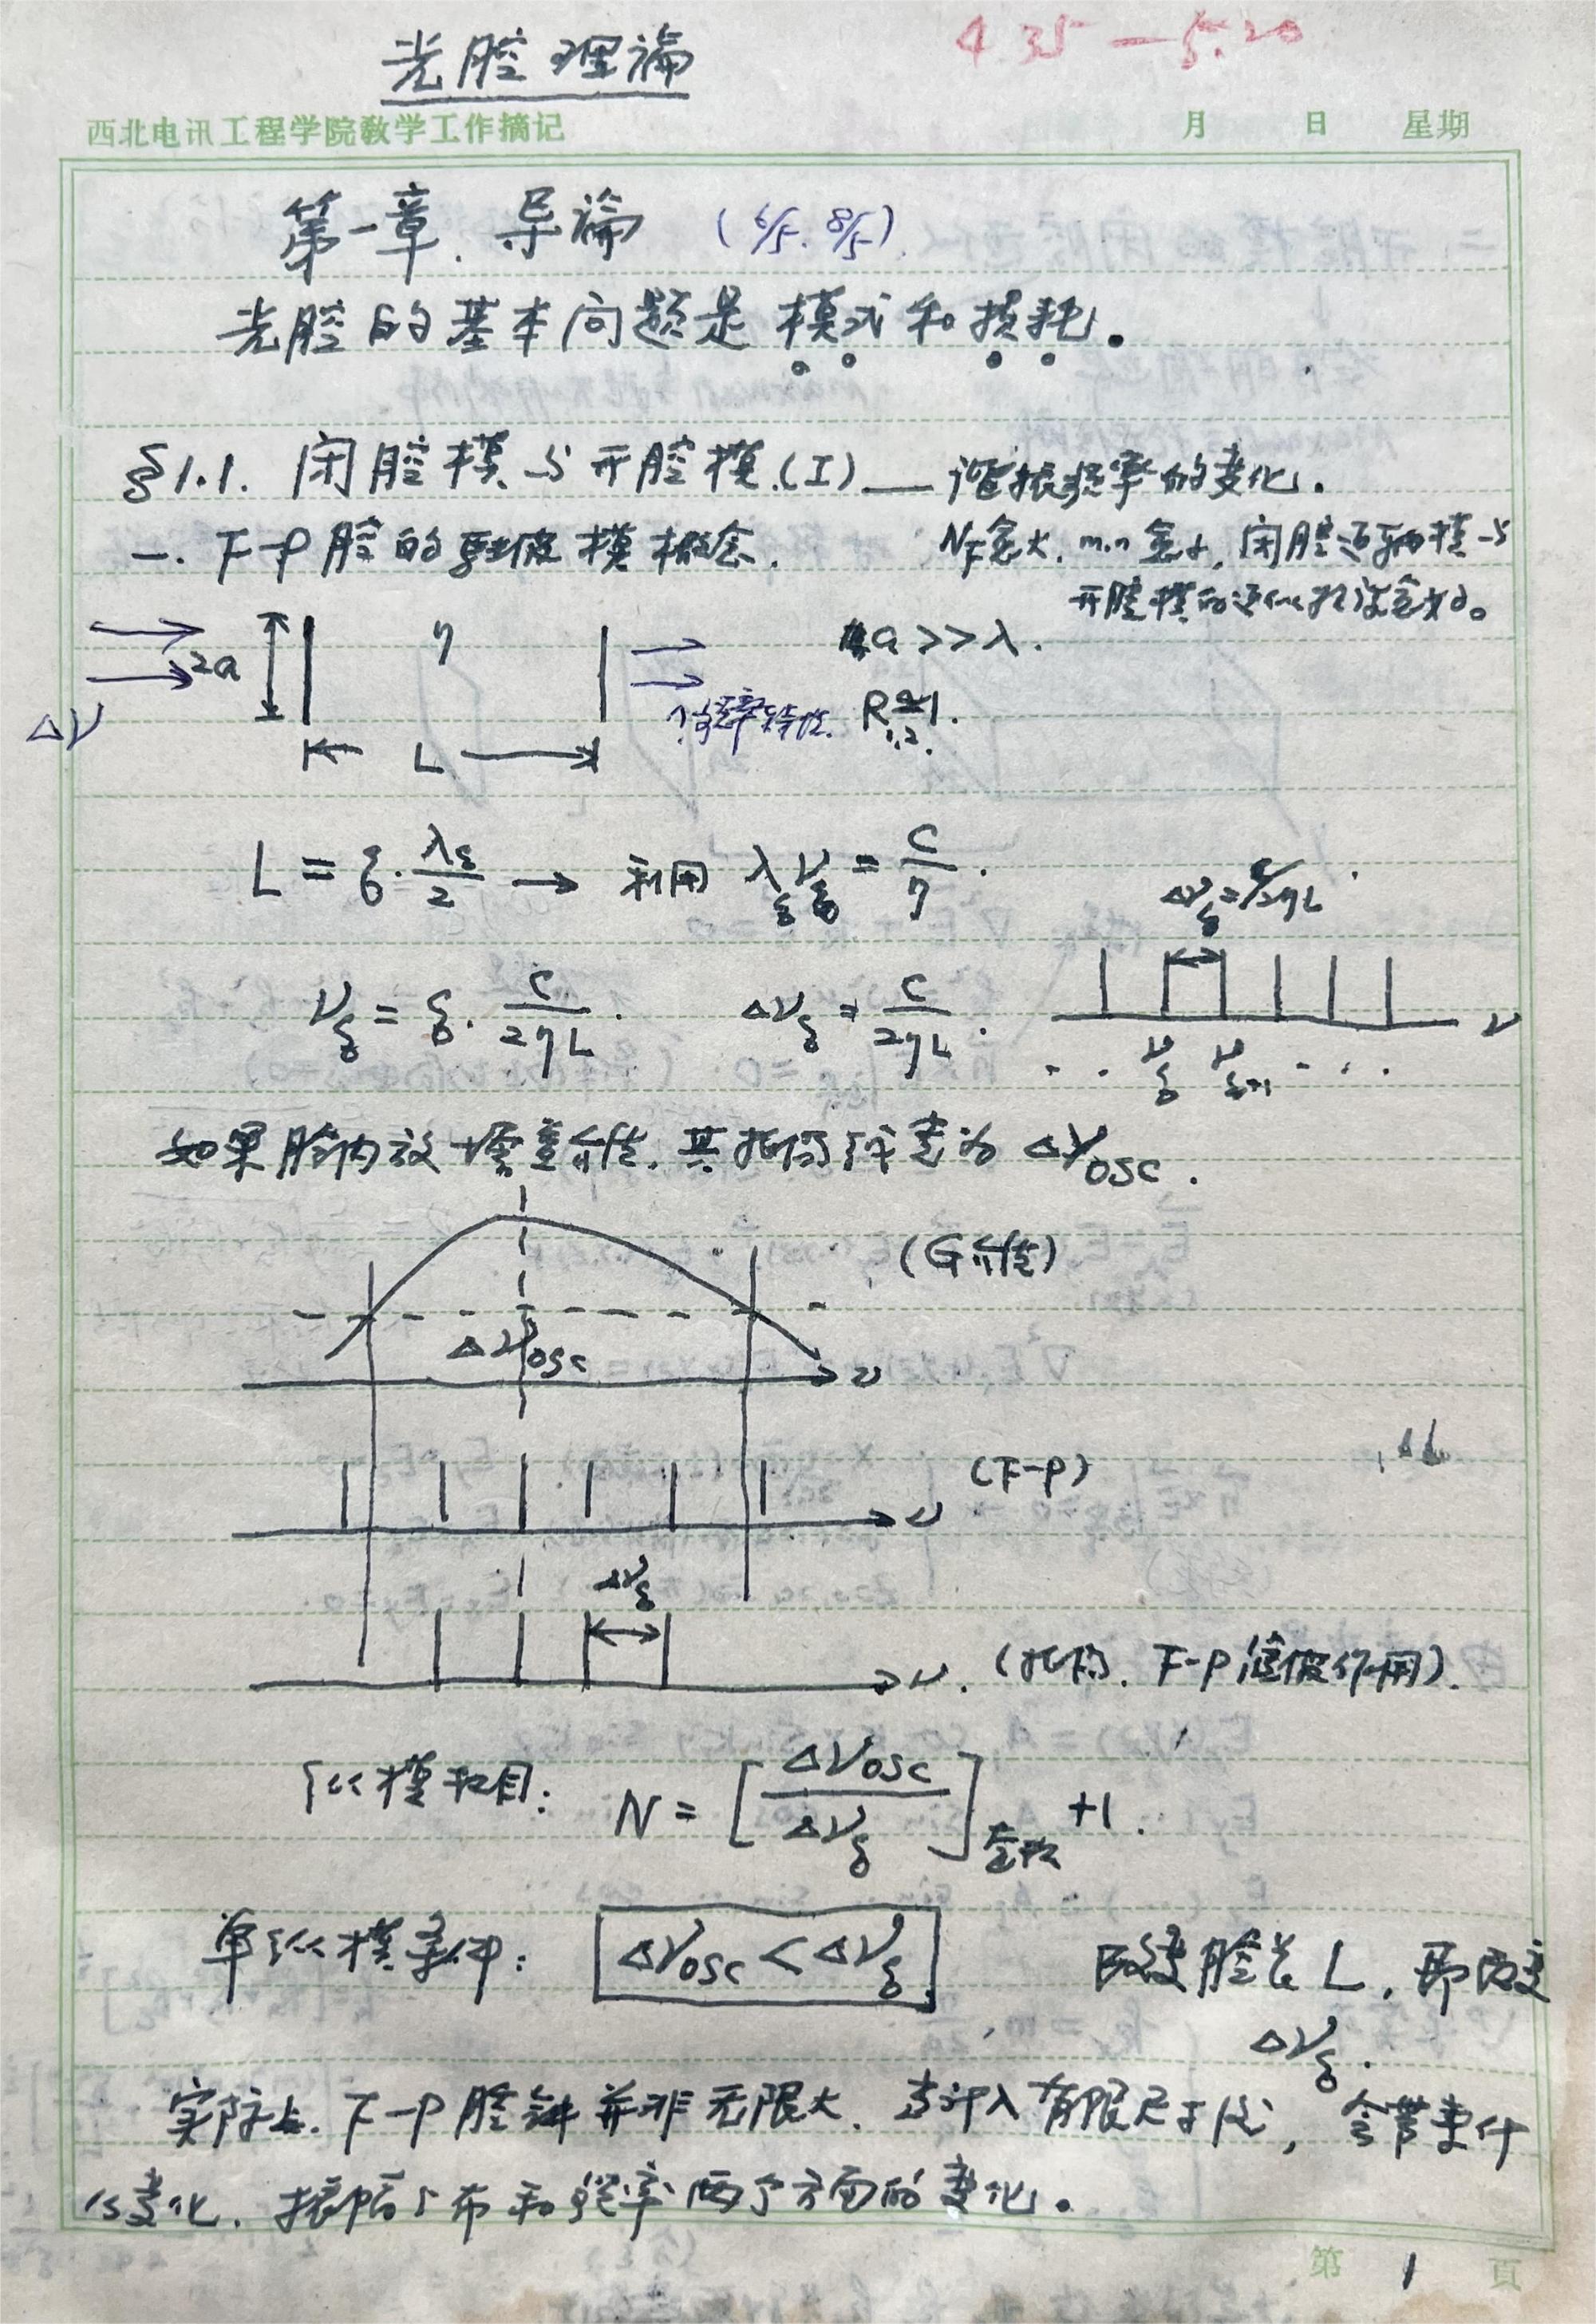 光腔理論
4.35—5.20
西北电讯工程学院教学工作摘记 月 日 星期
第一章. 导論 (6/5. 8/5).
光腔的基本问题是模式和损耗。
§1.1. 闭腔模与开腔模(I)— 谐振频率的变化.
一. F-P腔的驻波模概念.
N_F愈大, m.n愈小, 闭腔近轴模与
开腔模的近似程度愈好。
2a η a>>λ.
Δν 频率特性. R₁,₂≅1.
L
L = q·λq/2 → 利用 λqνq = C/η.
Δνq = C/2ηL
νq = q·C/2ηL. Δνq = C/2ηL. ν
·· νq νq+1 ···
如果腔内放增益介质, 其振荡线宽为 Δνosc.
(G介质)
Δνosc ν
(F-P)
ν
Δνq
ν. (振荡. F-P滤波作用).
纵模数目: N = [Δνosc/Δνq]整数 +1.
单纵模条件: Δνosc < Δνq
改变腔长 L, 即改变
Δνq.
实际上. F-P腔 并非无限大. 当计入有限尺寸后, 会带来什
么变化. 振幅分布和频率两个方面的变化。
第 1 頁